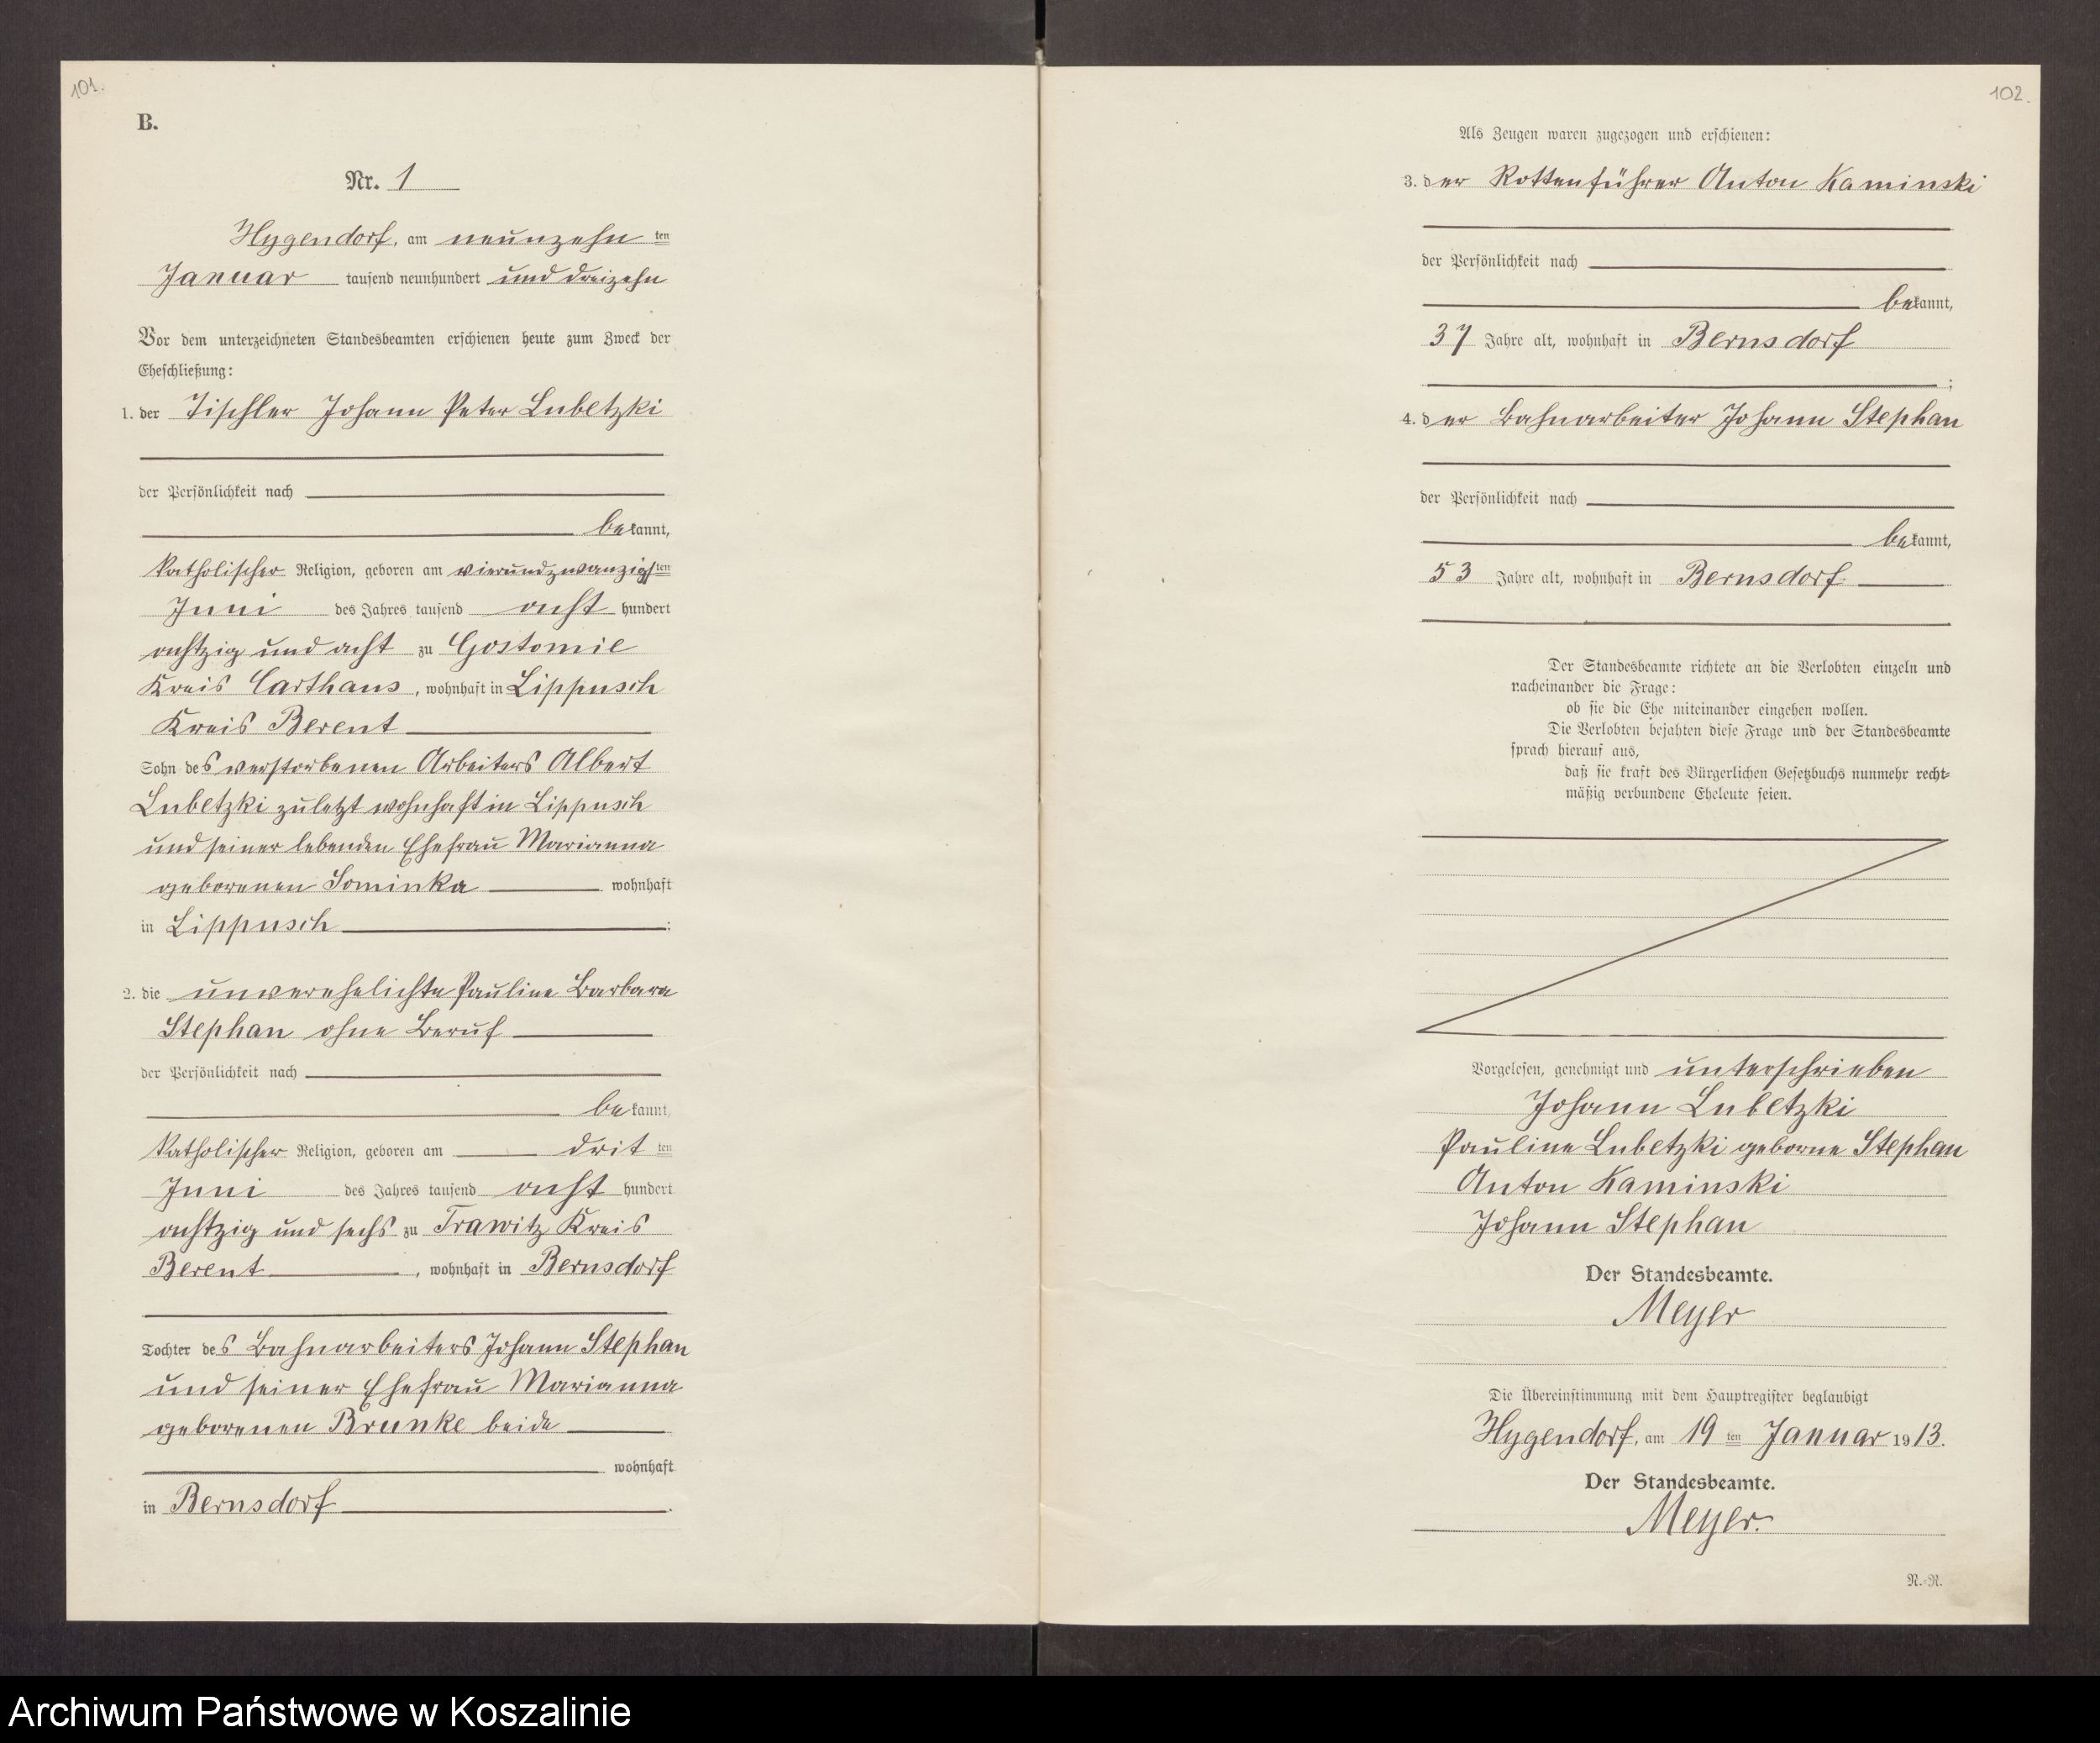 101.
B.
Nr. 1
Hygendorf, am neunzehn ten
Januar tausend neunhundert und dreizehn
Vor dem unterzeichneten Standesbeamten erschienen heute zum Zweck der
Eheschließung:
1. der Tischler Johann Peter Lubetzki
der Persönlichkeit nach
bekannt,
katholischer Religion, geboren am vierundzwanzigsten
Juni des Jahres tausend acht hundert
achtzig und acht zu Gostomie
Kreis Carthaus, wohnhaft in Lippusch
Kreis Berent
Sohn des verstorbenen Arbeiters Albert
Lubetzki zuletzt wohnhaft in Lippusch
und seiner lebenden Ehefrau Marianna
geborenen Sominka wohnhaft
in Lippusch ;
2. die unverehelichte Pauline Barbara
Stephan ohne Beruf
der Persönlichkeit nach
bekannt,
katholischer Religion, geboren am drit ten
Juni des Jahres tausend acht hundert
achtzig und sechs zu Trawitz Kreis
Berent, wohnhaft in Bernsdorf
Tochter des Bahnarbeiters Johann Stephan
und seiner Ehefrau Marianna
geborenen Brunke beide
wohnhaft
in Bernsdorf.
102.
Als Zeugen waren zugezogen und erschienen:
3. der Rottenführer Anton Kaminski
der Persönlichkeit nach
bekannt,
37 Jahre alt, wohnhaft in Bernsdorf
;
4. der Bahnarbeiter Johann Stephan
der Persönlichkeit nach
bekannt,
53 Jahre alt, wohnhaft in Bernsdorf.
Der Standesbeamte richtete an die Verlobten einzeln und
nacheinander die Frage:
ob sie die Ehe miteinander eingehen wollen.
Die Verlobten bejahten diese Frage und der Standesbeamte
sprach hierauf aus,
daß sie kraft des Bürgerlichen Gesetzbuchs nunmehr recht-
mäßig verbundene Eheleute seien.
Vorgelesen, genehmigt und unterschrieben
Johann Lubetzki
Pauline Lubetzki geborne Stephan
Anton Kaminski
Johann Stephan
Der Standesbeamte.
Meyer
Die Übereinstimmung mit dem Hauptregister beglaubigt
Hygendorf, am 19 ten Januar 1913.
Der Standesbeamte.
Meyer.
N.-N.
Archiwum Państwowe w Koszalinie